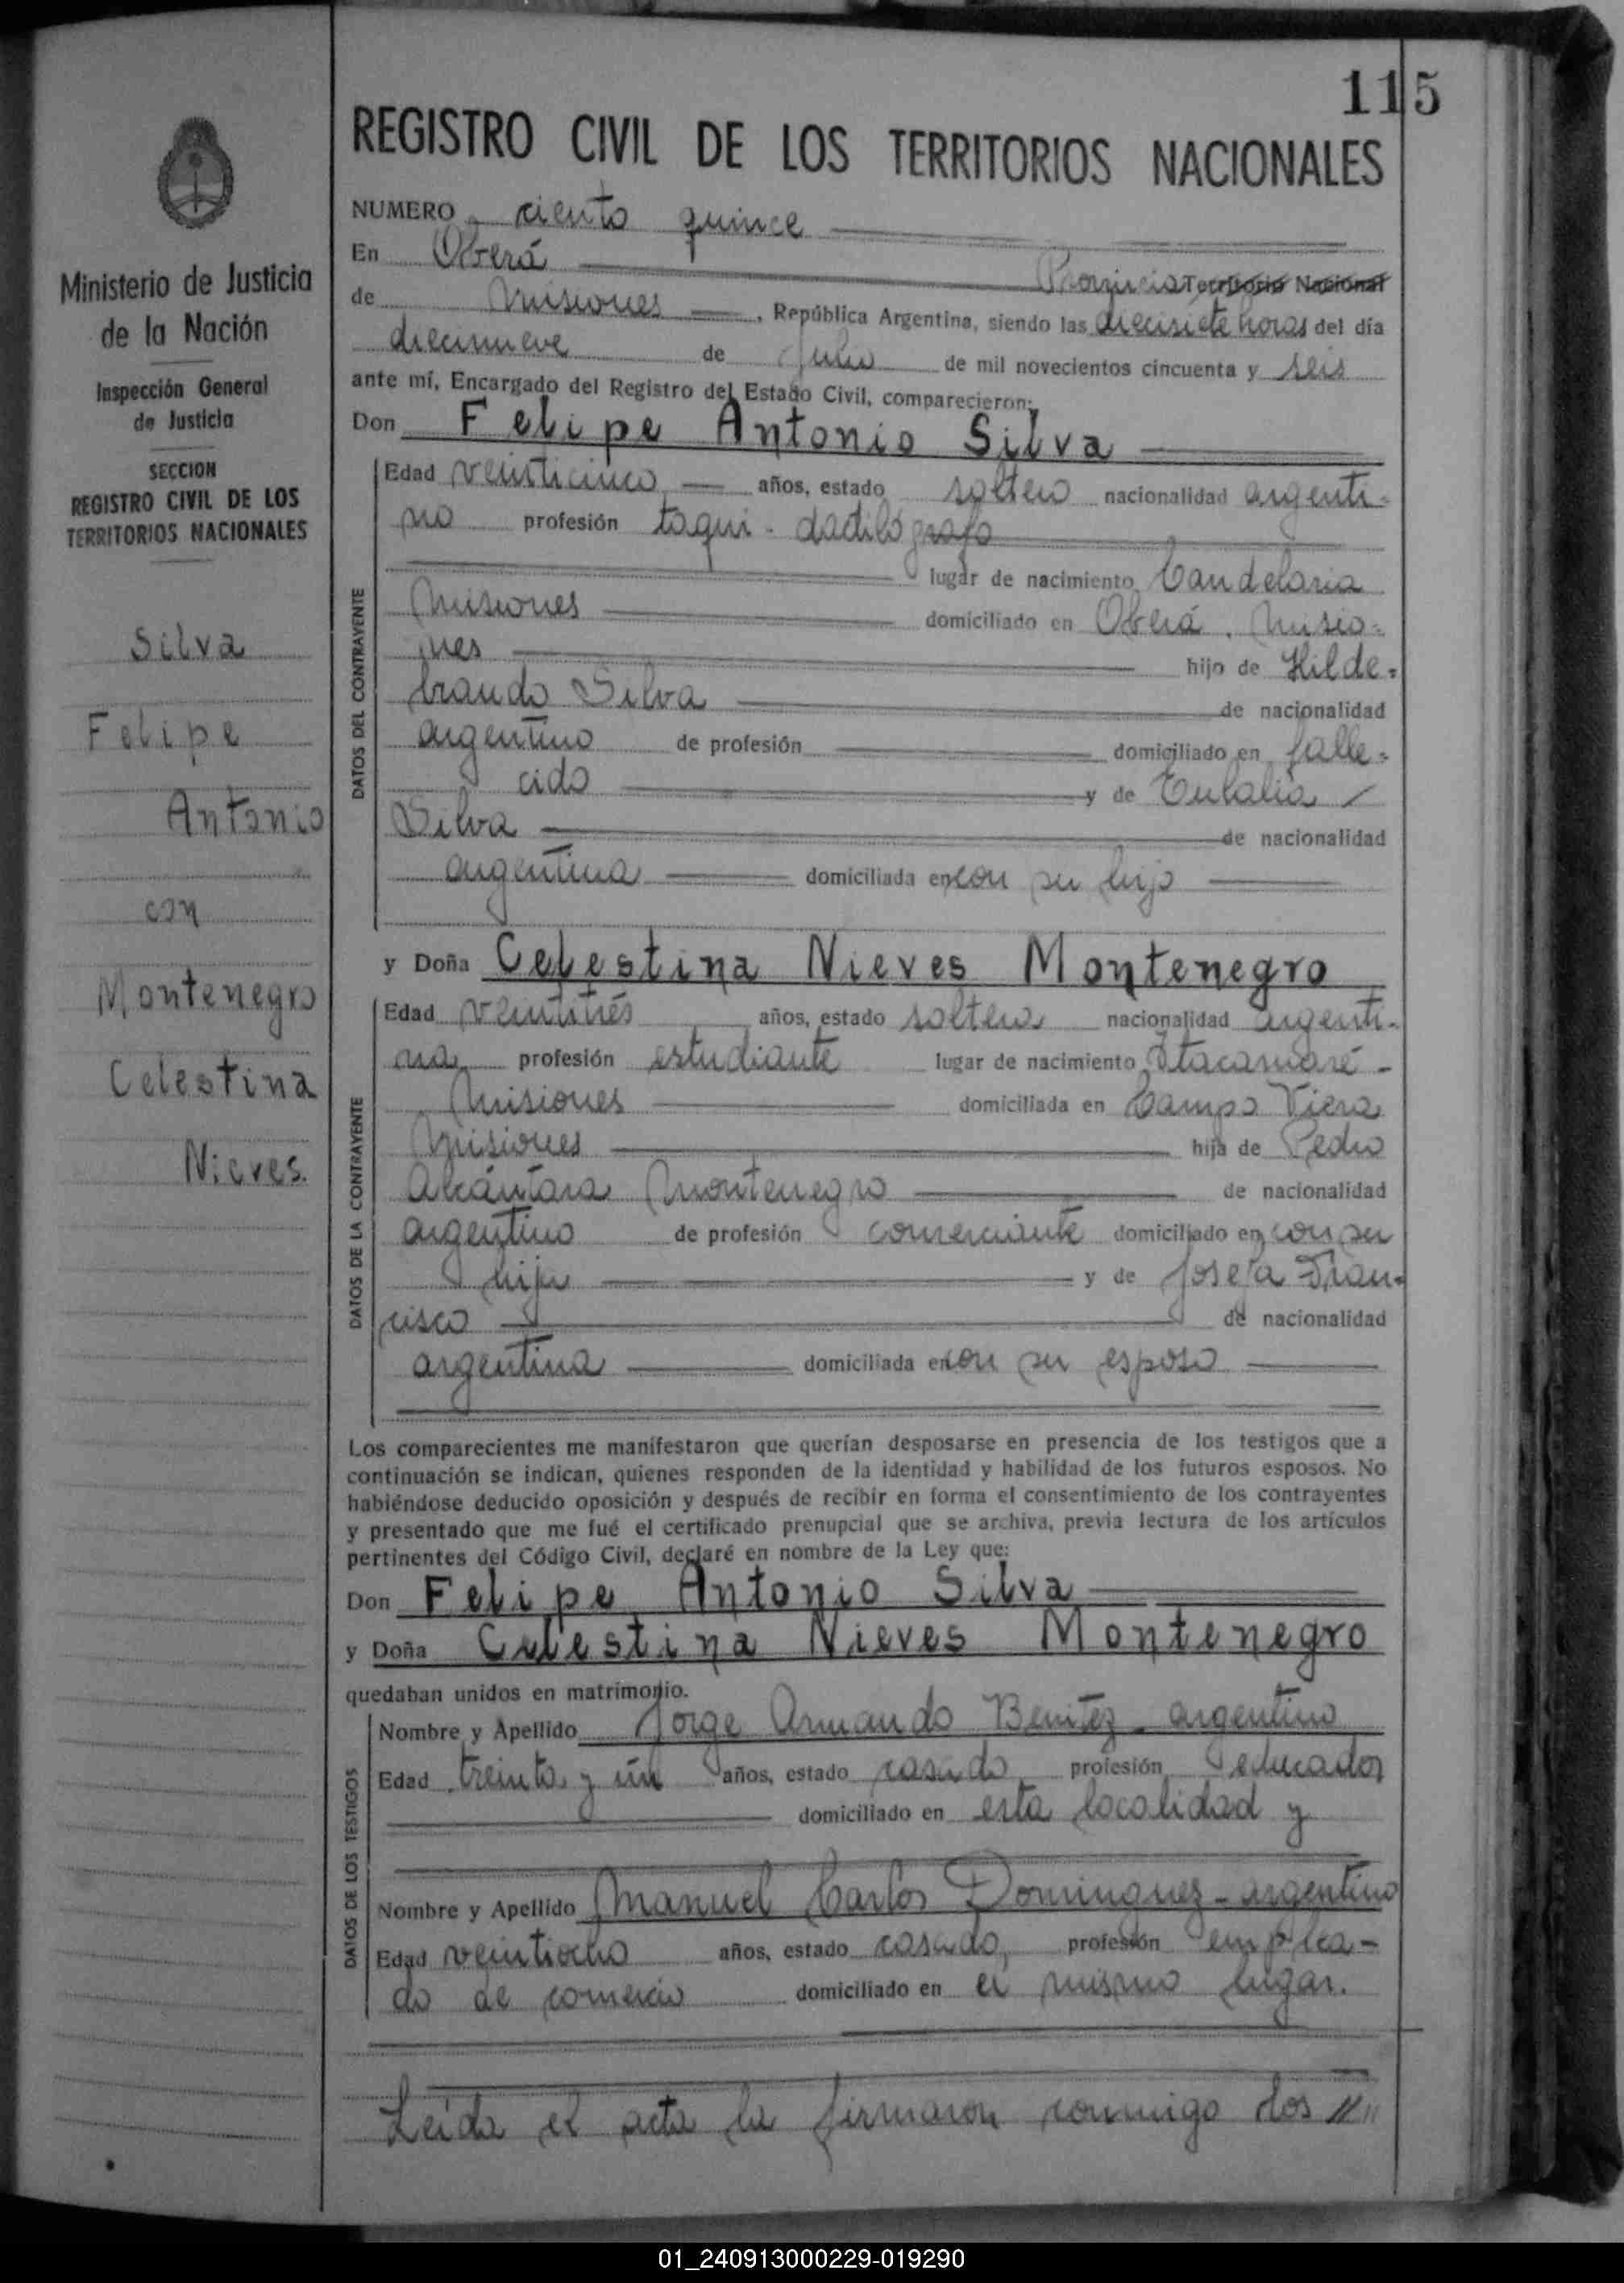 115
REGISTRO CIVIL DE LOS TERRITORIOS NACIONALES
Ministerio de Justicia
de la Nación
Inspección General
de Justicia
SECCION
REGISTRO CIVIL DE LOS
TERRITORIOS NACIONALES
Silva
Felipe
Antonio
con
Montenegro
Celestina
Nieves.
NUMERO ciento quince
En Oberá Provincia Territorio Nacional
de Misiones, República Argentina, siendo las diecisiete horas del día
diecinueve de Julio de mil novecientos cincuenta y seis
ante mí, Encargado del Registro del Estado Civil, comparecieron:
Don Felipe Antonio Silva
DATOS DEL CONTRAYENTE
Edad veinticinco años, estado soltero nacionalidad argenti-
no profesión taqui-dactilógrafo
lugar de nacimiento Candelaria
Misiones domiciliado en Oberá, Misio-
nes hijo de Hilde-
brando Silva de nacionalidad
argentino de profesión domiciliado en falle-
cido y de Eulalia
Silva de nacionalidad
argentina domiciliada en con su hijo
y Doña Celestina Nieves Montenegro
DATOS DE LA CONTRAYENTE
Edad veintitrés años, estado soltera nacionalidad argenti-
na profesión estudiante lugar de nacimiento Itacaruaré -
Misiones domiciliada en Campo Viera
Misiones hija de Pedro
Alcántara Montenegro de nacionalidad
argentino de profesión comerciante domiciliado en con su
hija y de Josefa Fran-
cisco de nacionalidad
argentina domiciliada en con su esposo
Los comparecientes me manifestaron que querían desposarse en presencia de los testigos que a
continuación se indican, quienes responden de la identidad y habilidad de los futuros esposos. No
habiéndose deducido oposición y después de recibir en forma el consentimiento de los contrayentes
y presentado que me fué el certificado prenupcial que se archiva, previa lectura de los artículos
pertinentes del Código Civil, declaré en nombre de la Ley que:
Don Felipe Antonio Silva
y Doña Celestina Nieves Montenegro
quedaban unidos en matrimonio.
DATOS DE LOS TESTIGOS
Nombre y Apellido Jorge Armando Benitez - argentino
Edad treinta y un años, estado casado profesión educador
domiciliado en esta localidad y
Nombre y Apellido Manuel Carlos Dominguez - argentino
Edad veintiocho años, estado casado, profesión emplea-
do de comercio domiciliado en el mismo lugar.
Leída el acta la firmaron conmigo los
01_240913000229-019290